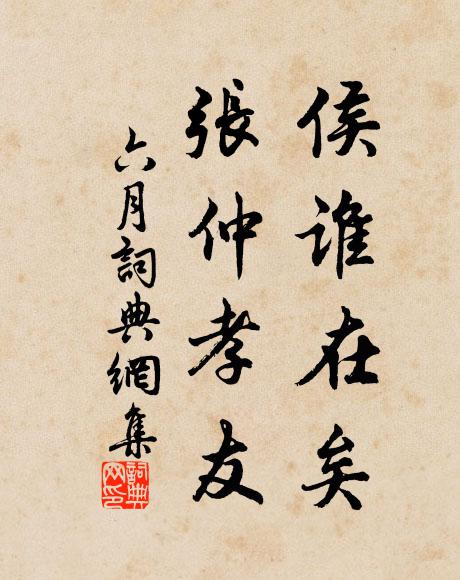 侯誰在矣
張仲孝友
六月詞典網集
詞典
网印